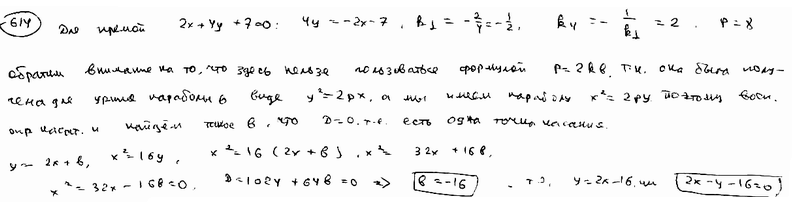 614 Для прямой 2x+4y+7=0: 4y=-2x-7, k₁ = -2/4 = -1/2, k₄ = -1/k₁ = 2. P=8
обратим внимание на то, что здесь нельзя пользоваться формулой P=2kb, т.к. она была полу-
чена для ур-ия параболы в виде y²=2px, а мы имеем параболу x²=2py поэтому восп.
опр касат. и найдём такое b, что D=0, т.е. есть одна точка касания.
y=2x+b, x²=16y, x²=16(2x+b), x²=32x+16b,
x²=32x-16b=0, D=1024+64b=0 => b=-16. т.о., y=2x-16, или 2x-y-16=0